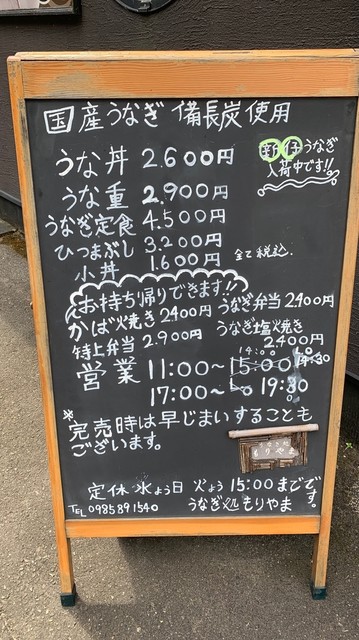 国産うなぎ 備長炭使用
新仔うなぎ
入荷中です!!
うな丼 2.600円
うな重 2.900円
うなぎ定食 4.500円
ひつまぶし 3.200円
小丼 1.600円
全て税込.
お持ち帰りできます!!
うなぎ弁当 2.400円
かば焼き 2400円
うなぎ塩焼き
2.400円
特上弁当 2.900円
営業 11:00~15:00
14:00 L.O
14:30
17:00~L.O 19:30
*完売時は早じまいすることも
ございます。
もりやま
定休 水よう日 火よう 15:00までです。
TEL 0985891540 うなぎ処もりやま